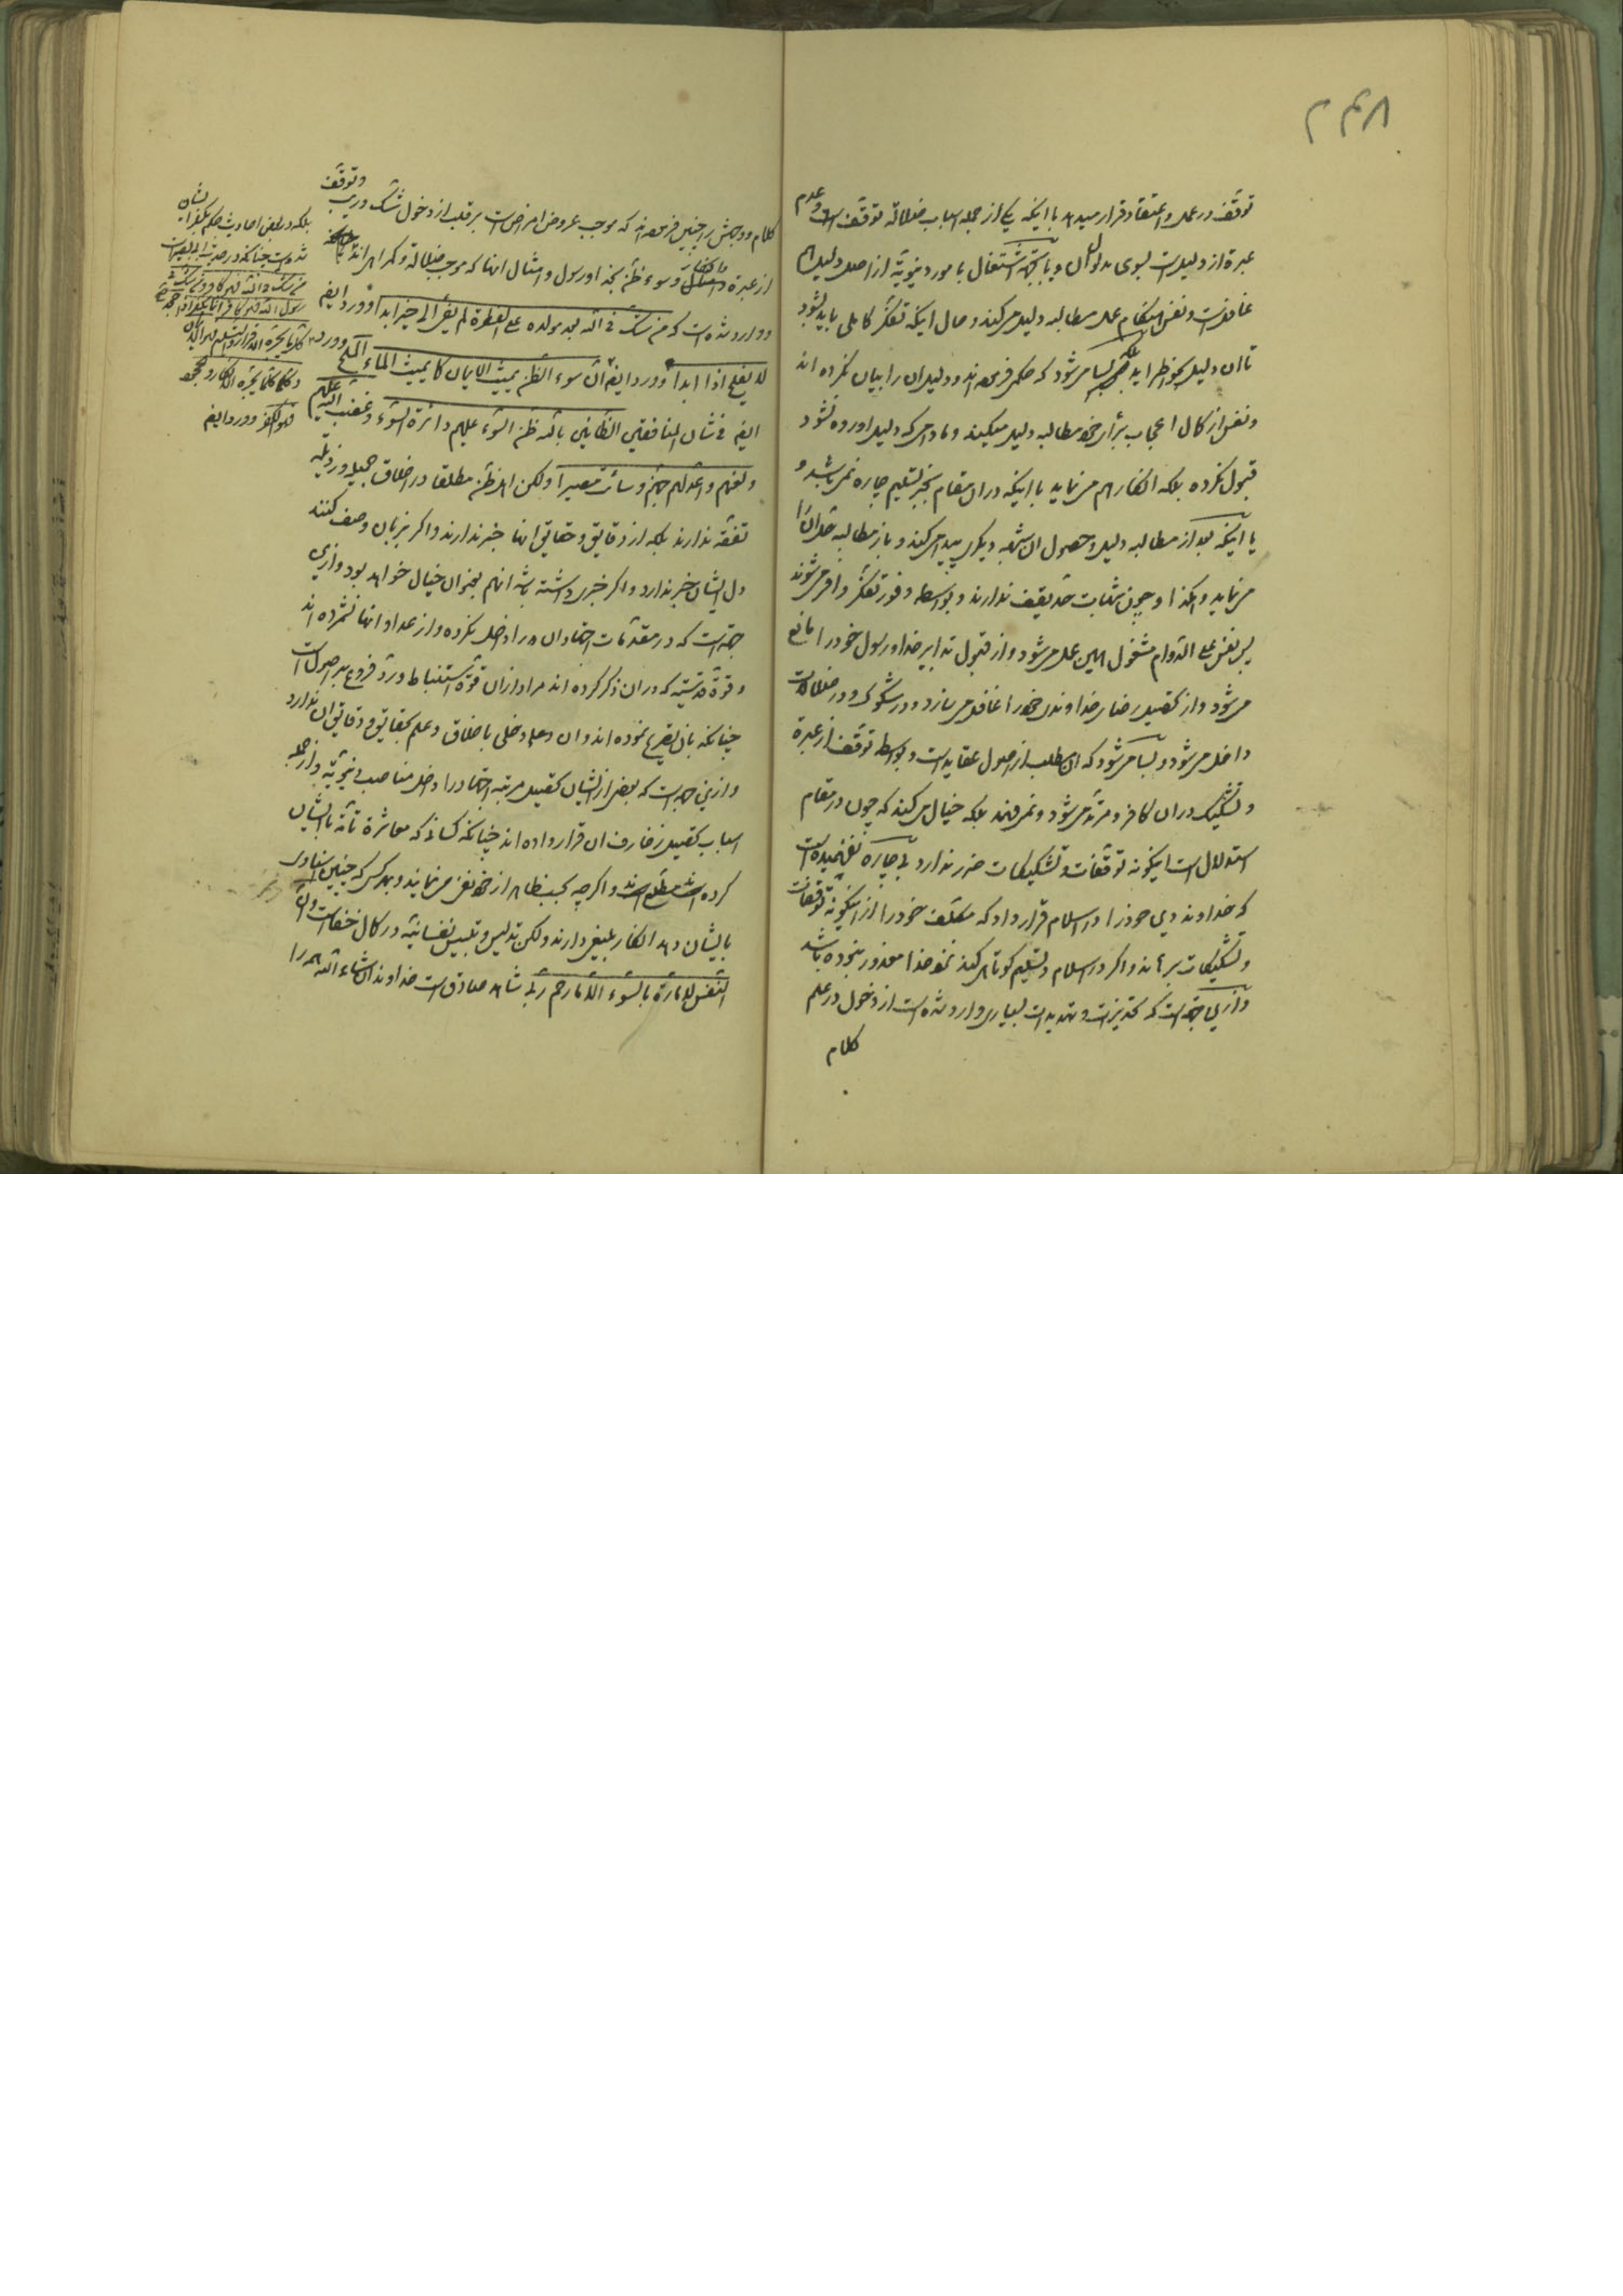 ۲۴۸
توقف در عمل و اعتقاد قرار میدهد با اینکه یکی از جمله اسباب ضلالة توقف است و عدم
عبرة از دلیل است بسوی مدلول ان و یا بجهة اشتغال بامور دنیویّة از اصل دلیل
غافل است و نفس هنگام عمل مطالبه دلیل میکند و حال اینکه تفکر کاملی باید بشود
تا ان دلیل بخواطر اید بلکه بسا میشود که حکمی فرموده اند و دلیل ان را بیان نکرده اند
و نفس از کمال اعجاب برأی خود مطالبه دلیل میکند و مادامی که دلیل اورده نشود
قبول نکرده بلکه انکار هم می نماید با اینکه در ان مقام بجز تسلیم چاره نمی باشد و
یا اینکه بعد از مطالبه دلیل و حصول ان شبهه دیگری پیدا میکند و باز مطالبه حل انرا
می نماید و هکذا و چون شبهات حد یقف ندارند و بواسطه وفور تفکر وافر میشوند
پس نفس علی الدّوام مشغول همین عمل میشود و از قبول تدابیر خدا و رسول خود را مانع
میشود و از تحصیل رضای خداوندی خود را غافل میسازد و در شکوک و در ضلالات
داخل میشود و بسا میشود که ان مطلب از اصول عقاید است و بواسطه توقف از عبرة
و تشکیک در ان کافر و مرتد میشود و نمی فهمد بلکه خیال میکند که چون در مقام
استدلال است اینگونه توقفات و تشکیکات ضرر ندارد بیچاره نفهمیده است
که خداوند دین خود را در اسلام قرار داد که مکلف خود را از اینگونه توقفات
و تشکیکات برهاند و اگر در اسلام و تسلیم کوتاهی کند نزد خدا معذور نبوده باشد
و ازین جهة است که تحذیرات و تهدیدات بسیاری وارد شده است از دخول در علم
کلام
کلام و وجهش را چنین فرموده اند که موجب عروض امراض است بر قلب از دخول شک و ریب و توقف
از عبرة و انکار و سوء ظن بخدا و رسول و امثال اینها که موجب ضلالة و گمراهی اند
و وارد شده است که من شک فی الله بعد مولده علی الفطرة لم یفئ الی خیر ابدا و ورد ایضا
لا یفلح اذا ابدا و ورد ایضا انّ سوء الظن یمیث الایمان کما یمیث الماء الملح و ورد
ایضا فی شان المنافقین الظانین بالله ظن السّوء علیهم دائرة السّوء و غضب الله علیهم
و لعنهم و اعدّ لهم جهنم و سائت مصیرا و لکن اهل ظن مطلقا در اخلاق جمیله و رذیله
تفقه ندارند بلکه از دقایق و حقایق انها خبر ندارند و اگر بزبان وصف کنند
دل ایشان خبر ندارد و اگر خبری داشته باشد انهم بعنوان خیال خواهد بود و ازین
جهة است که در مقدّمات اجتهاد ان را داخل نکرده و از عداد انها نشمرده اند
و قوّة قدسیّة که در ان ذکر کرده اند مراد از ان قوّة استنباط و ردّ فروع بر اصول است
چنانکه بان تصریح نموده اند و ان دخلی باخلاق و علم بحقایق و دقایق ان ندارد
و ازین جهة است که بعض از ایشان تحصیل مرتبه اجتهاد را داخل مناصب دنیویّة و از جمله
اسباب تحصیل زخارف ان قرار داده اند چنانکه کسانی که معاشرة تامّه با ایشان
کرده مطلع اند و اگرچه بحسب ظاهر از خود نفی می نمایند و بهر کس که چنین اسنادی
بایشان دهد انکار بلیغی دارند و لکن تدلیس و تلبیس نفسانیّه در کمال خفاست و انّ
النّفس لامّارة بالسّوء الّا ما رحم ربّی شاهد صادق است خداوند ان شاء الله همه را
بلکه در بعض احادیث حکم بکفر ایشان
شده است چنانکه در حدیث ابی بصیر است
من شک فی الله فهو کافر و من شک فی
رسول الله فهو کافر انما یکفر اذا جحد
کلّ ما یجرّه الاقرار و التسلیم فهو الایمان
و کلما یجرّه الانکار و الجحود
فهو الکفر و ورد ایضا